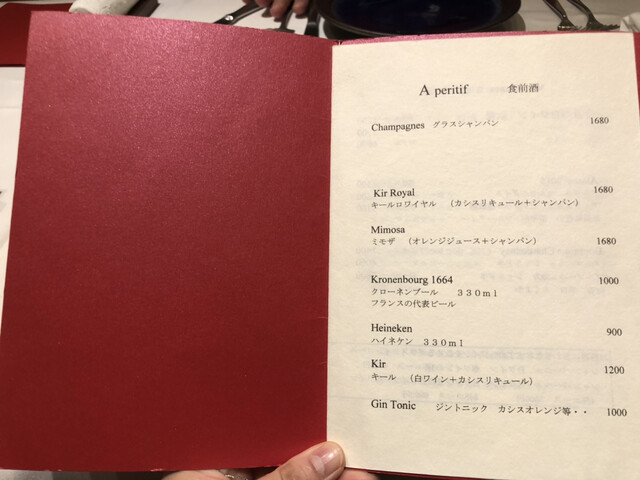 A peritif 食前酒
Champagnes グラスシャンパン 1680
Kir Royal 1680
キールロワイヤル （カシスリキュール＋シャンパン）
Mimosa
ミモザ （オレンジジュース＋シャンパン） 1680
Kronenbourg 1664 1000
クローネンブール ３３０ｍｌ
フランスの代表ビール
Heineken 900
ハイネケン ３３０ｍｌ
Kir 1200
キール （白ワイン＋カシスリキュール）
Gin Tonic ジントニック カシスオレンジ等・・ 1000